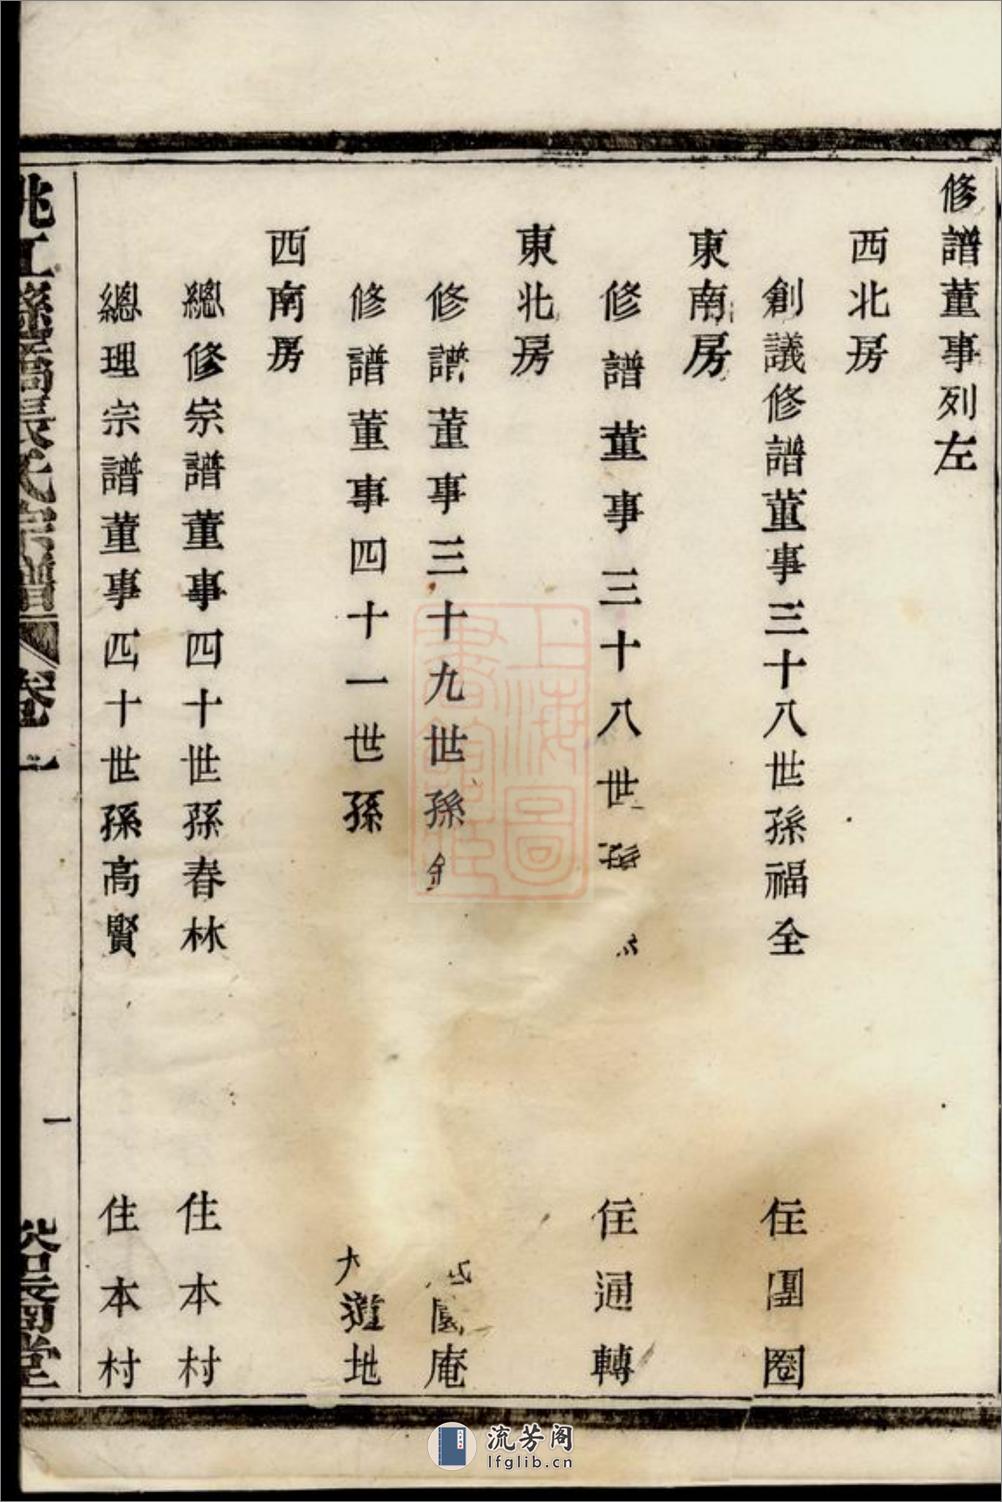 修譜董事列左
西北房
創議修譜董事三十八世孫福全 住團圈
東南房
修譜董事三十八世 住通轉
東北房
修譜董事三十九世孫 庵
修譜董事四十一世孫 道地
西南房
總修宗譜董事四十世孫春林 住本村
總理宗譜董事四十世孫高賢 住本村
張氏宗譜 卷一 一 裕後堂
上海圖書館藏
流芳阁
lfglib.cn